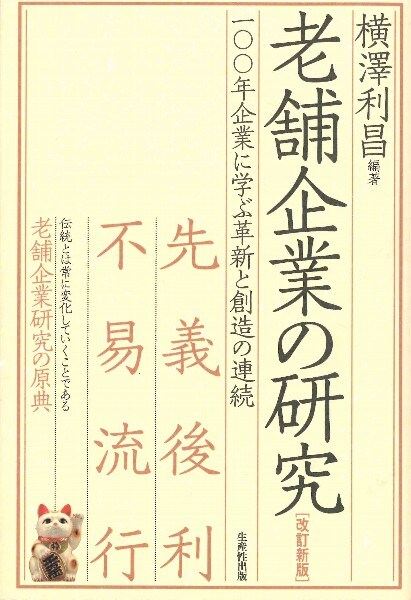 横澤利昌 編著
老舗企業の研究 [改訂新版]
一〇〇年企業に学ぶ革新と創造の連続
生産性出版
先義後利
不易流行
伝統とは常に変化していくことである
老舗企業研究の原典